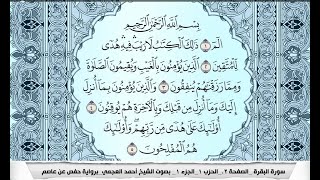 بِسْمِ اللَّهِ الرَّحْمَٰنِ الرَّحِيمِ
الٓمٓ ١ ذَٰلِكَ الْكِتَٰبُ لَا رَيْبَ فِيهِ هُدًى
لِّلْمُتَّقِينَ ٢ الَّذِينَ يُؤْمِنُونَ بِالْغَيْبِ وَيُقِيمُونَ الصَّلَوٰةَ
وَمِمَّا رَزَقْنَٰهُمْ يُنفِقُونَ ٣ وَالَّذِينَ يُؤْمِنُونَ بِمَا أُنزِلَ
إِلَيْكَ وَمَا أُنزِلَ مِن قَبْلِكَ وَبِالْآخِرَةِ هُمْ يُوقِنُونَ ٤
أُولَٰئِكَ عَلَىٰ هُدًى مِّن رَّبِّهِمْ وَأُولَٰئِكَ
هُمُ الْمُفْلِحُونَ ٥
سورة البقرة _ الصفحة ٢ _ الحزب ١ _ الجزء ١ _ بصوت الشيخ أحمد العجمي _ برواية حفص عن عاصم